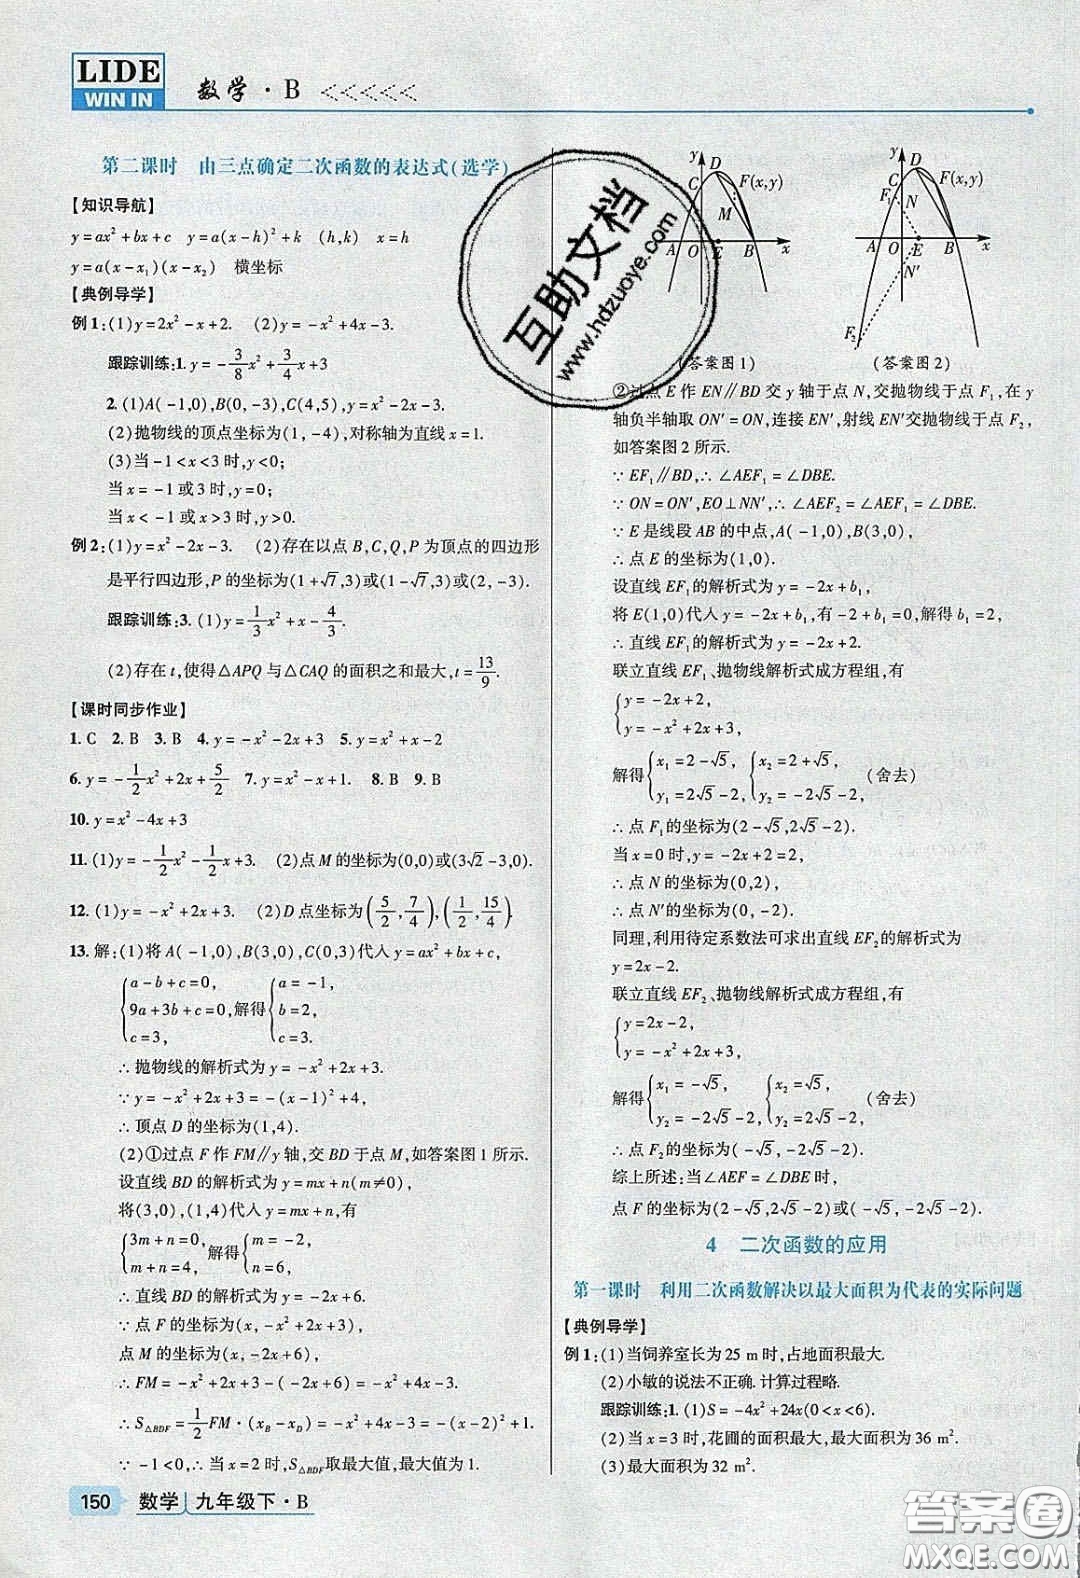 LIDE
WIN IN
数学·B
第二课时 由三点确定二次函数的表达式(选学)
【知识导航】
y=ax²+bx+c y=a(x-h)²+k (h,k) x=h
y=a(x-x₁)(x-x₂) 横坐标
【典例导学】
例1:(1)y=2x²-x+2. (2)y=-x²+4x-3.
跟踪训练:1.y=-3/8x²+3/4x+3
2.(1)A(-1,0),B(0,-3),C(4,5),y=x²-2x-3.
(2)抛物线的顶点坐标为(1,-4),对称轴为直线x=1.
(3)当-1<x<3时,y<0;
当x=-1或3时,y=0;
当x<-1或x>3时,y>0.
例2:(1)y=x²-2x-3. (2)存在以点B,C,Q,P为顶点的四边形
是平行四边形,P的坐标为(1+√7,3)或(1-√7,3)或(2,-3).
跟踪训练:3.(1)y=1/3x²+x-4/3.
(2)存在t,使得△APQ与△CAQ的面积之和最大,t=13/9.
【课时同步作业】
1.C 2.B 3.B 4.y=-x²-2x+3 5.y=x²+x-2
6.y=-1/2x²+2x+5/2 7.y=x²-x+1. 8.B 9.B
10.y=x²-4x+3
11.(1)y=-1/2x²-1/2x+3. (2)点M的坐标为(0,0)或(3√2-3,0).
12.(1)y=-x²+2x+3. (2)D点坐标为(5/2,7/4),(1/2,15/4).
13.解:(1)将A(-1,0),B(3,0),C(0,3)代入y=ax²+bx+c,
{a-b+c=0, {a=-1,
9a+3b+c=0,解得 b=2,
c=3, c=3,
∴抛物线的解析式为y=-x²+2x+3.
∵y=-x²+2x+3=-(x-1)²+4,
∴顶点D的坐标为(1,4).
(2)①过点F作FM∥y轴,交BD于点M,如答案图1所示.
设直线BD的解析式为y=mx+n(m≠0),
将(3,0),(1,4)代入y=mx+n,有
{3m+n=0, 解得{m=-2,
m+n=4, n=6.
∴直线BD的解析式为y=-2x+6.
∵点F的坐标为(x,-x²+2x+3),
点M的坐标为(x,-2x+6),
∴FM=-x²+2x+3-(-2x+6)=-x²+4x-3,
∴S△BDF=1/2FM·(xB-xD)=-x²+4x-3=-(x-2)²+1.
∵-1<0,∴当x=2时,S△BDF取最大值,最大值为1.
y D C F(x,y) M A O E B x
(答案图1)
y D C F₁ F(x,y) N A O E B x N′ F₂
(答案图2)
②过点E作EN∥BD交y轴于点N,交抛物线于点F₁,在y
轴负半轴取ON′=ON,连接EN′,射线EN′交抛物线于点F₂,
如答案图2所示.
∵EF₁∥BD,∴∠AEF₁=∠DBE.
∵ON=ON′,EO⊥NN′,∴∠AEF₂=∠AEF₁=∠DBE.
∵E是线段AB的中点,A(-1,0),B(3,0),
∴点E的坐标为(1,0).
设直线EF₁的解析式为y=-2x+b₁,
将E(1,0)代入y=-2x+b₁,有-2+b₁=0,解得b₁=2,
∴直线EF₁的解析式为y=-2x+2.
联立直线EF₁、抛物线解析式成方程组,有
{y=-2x+2,
y=-x²+2x+3,
解得{x₁=2-√5, {x₂=2+√5, (舍去)
y₁=2√5-2, y₂=-2√5-2,
∴点F₁的坐标为(2-√5,2√5-2).
当x=0时,y=-2x+2=2,
∴点N的坐标为(0,2),
∴点N′的坐标为(0,-2).
同理,利用待定系数法可求出直线EF₂的解析式为
y=2x-2.
联立直线EF₂、抛物线解析式成方程组,有
{y=2x-2,
y=-x²+2x+3,
解得{x₁=-√5, {x₂=√5, (舍去)
y₁=-2√5-2, y₂=2√5-2,
∴点F₂的坐标为(-√5,-2√5-2).
综上所述:当∠AEF=∠DBE时,
点F的坐标为(2-√5,2√5-2)或(-√5,-2√5-2).
4 二次函数的应用
第一课时 利用二次函数解决以最大面积为代表的实际问题
【典例导学】
例1:(1)当饲养室长为25 m时,占地面积最大.
(2)小敏的说法不正确.计算过程略.
跟踪训练:1.(1)S=-4x²+24x(0<x<6).
(2)当x=3时,花圃的面积最大,最大面积为36 m².
(3)最大面积为32 m².
150 数学 九年级下·B
互助文档
www.hdzuoye.com
答案圈
MXQE.COM